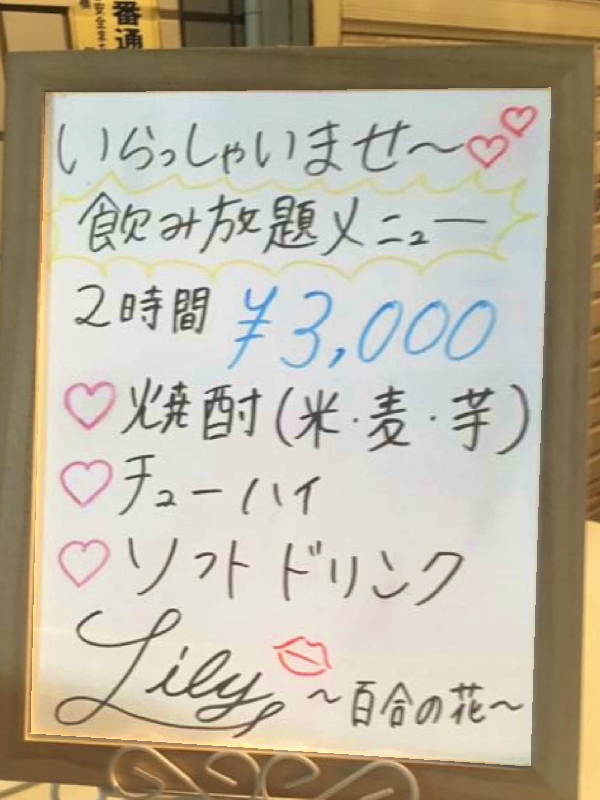 番通
安全ま
いらっしゃいませ〜
飲み放題メニュー
2時間 ¥3,000
焼酎(米・麦・芋)
チューハイ
ソフトドリンク
Lily
〜百合の花〜